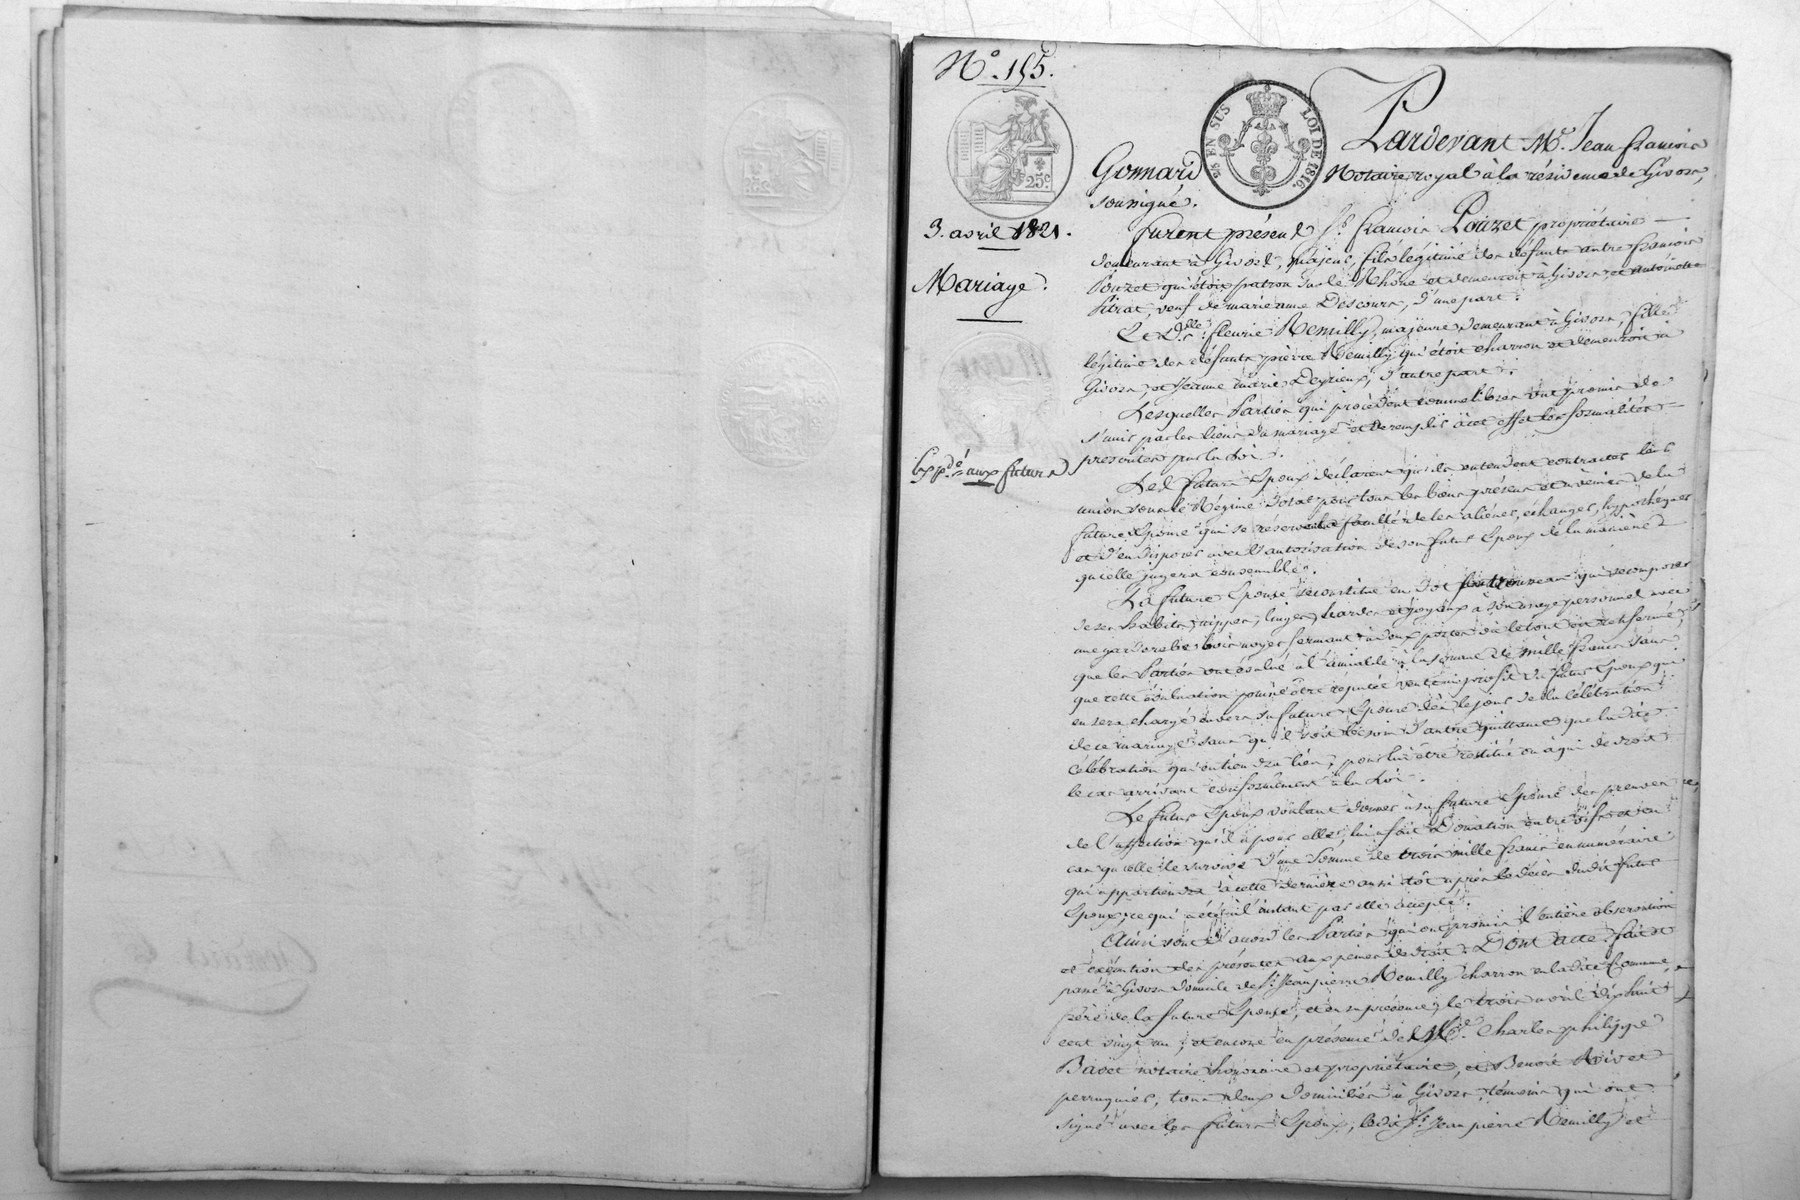 N.° 155.
25c
EN SUS LOI DE 1816.
3. avril 1821.
Mariage.
Exp.dé aux futurs
Pardevant M.e Jean françois
Gonnard Notaire royal à la résidence de Givors,
soussigné.
furent présens Sr. françois Pouzet propriétaire
demeurant à Givors, majeur, fils légitime des défunts autre françois
Pouzet qui étoit patron sur le Rhône et demeuroit à Givors, et antoinette
Pitrat, veuf de marie anne Descours, d'une part;
Et Dlle. fleurie Remilly, majeure demeurant à Givors, fille
légitime des défunts pierre Remilly qui étoit charron et demeuroit à
Givors, et Jeanne marie Deyrieux, d'autre part;
Lesquelles Parties qui procèdent comme libres ont promis de
s'unir par les liens du mariage et de remplir à cet effet les formalités
prescrites par la Loi.
Les futurs Epoux déclarent qu'ils entendent contracter leur
union sous le Régime Dotal pour tous les biens présens et à venir de la
future Epouse qui se réserve la faculté de les aliéner, échanger, hypothéquer
et d'en disposer avec l'autorisation de son futur Epoux de la manière
qu'elle jugera convenable.
La future Epouse se constitue en Dot son trousseau qui se compose
de ses habits, nippes, linges, hardes et joyaux à son usage personnel avec
une garderobe bois noyer fermant à deux portes où le tout est renfermé,
que les Parties ont évalué à l'amiable à la somme de mille francs sans
que cette évaluation puisse être réputée vente au profit du futur Epoux qui
en sera chargé envers sa future Epouse dès le jour de la célébration
de ce mariage sans qu'il soit besoin d'autre quittance que la dite
célébration qui en tiendra lieu, pour lui être restitué ou à qui de droit
le cas arrivant conformément à la Loi.
Le futur Epoux voulant donner à sa future Epouse des preuves
de l'affection qu'il a pour elle, lui a fait Donation entre vifs et en
cas qu'elle le survive d'une Somme de trois mille francs en numéraire
qui appartiendra à cette dernière aussi-tôt après le décès dudit futur
Epoux, ce qui a été à l'instant par elle accepté.
Ainsi sont d'accord les Parties qui ont promis l'entière observation
et exécution des présentes aux peines de droit. Dont acte fait et
passé à Givors domicile de Sr. Jean pierre Remilly charron en la dite Commune,
frère de la future Epouse, et en sa présence, le trois avril dix huit
cent vingt un, et encore en présence de M.e Charles philippe
Bavet notaire honoraire et propriétaire, et Benoit Rivet
perruquier, tous deux domiciliés à Givors, témoins qui ont
signé avec les futurs Epoux, ledit Sr. Jean pierre Remilly et